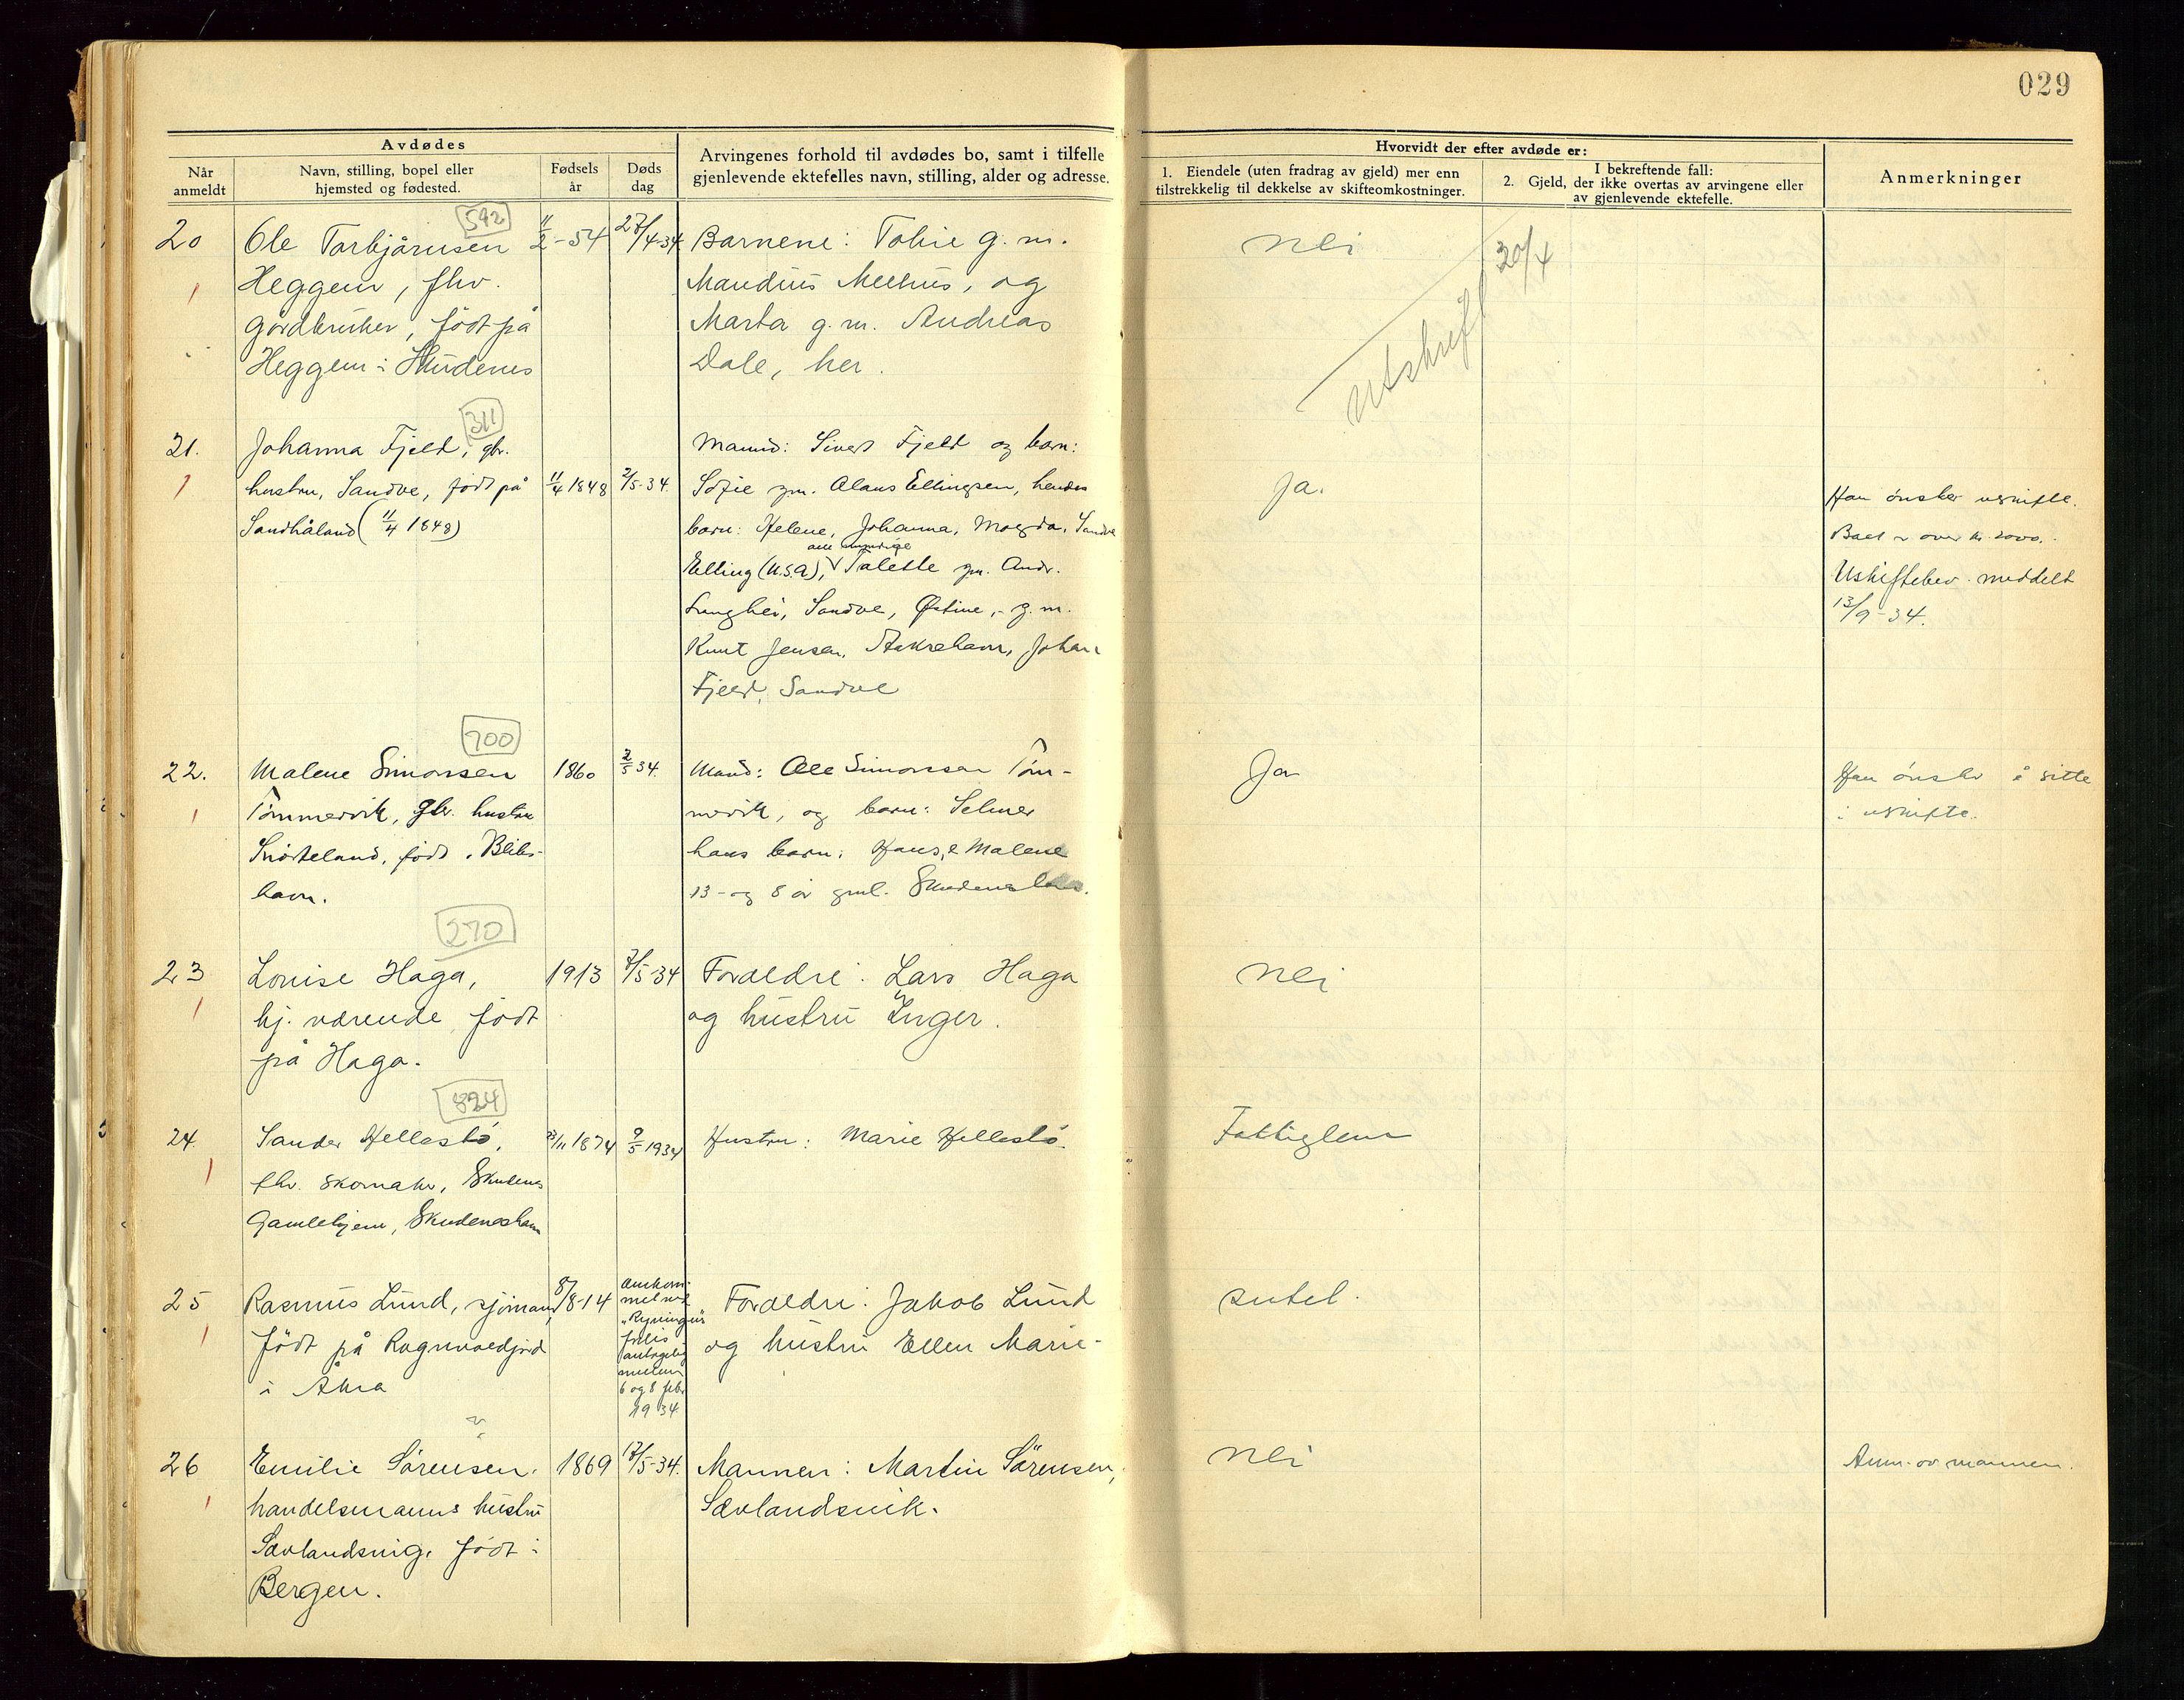 029
Avdødes
Når anmeldt
Navn, stilling, bopel eller hjemsted og fødested.
Fødsels år
Døds dag
Arvingenes forhold til avdødes bo, samt i tilfelle
gjenlevende ektefelles navn, stilling, alder og adresse.
Hvorvidt der efter avdøde er:
1. Eiendele (uten fradrag av gjeld) mer enn
tilstrekkelig til dekkelse av skifteomkostninger.
I bekreftende fall:
2. Gjeld, der ikke overtas av arvingene eller
av gjenlevende ektefelle.
Anmerkninger
592
20 Ole Torbjørnsen 11/2-54 27/4-34 Barnene: g. m. nei 30/4
Heggem, fhv. Meehus, og
gårdbruker, född på Marta g. m. Andreas
Heggem i Skudenes Dale, her.
Utskrift
311
21. Johanna Fjeld, gbr. Mannd: Sivert Fjeld og barn:
hustru, Sandve, född på 11/4 1848 2/5-34. Sofie gm. Elling­sen, hendes Ja. Han ønsker uskifte.
Sandhåland (11/4 1848) barn: Helene, Johanna, Magda, Sandve Boet er over kr. 2000.
alle myndige
Elling (U.S.A), Talette gm. Andr. Uskiftebev. meddelt
Sandve, Østine, g. m. 13/9-34.
Knut Jensen, Aakrehavn, Johan
Fjeld, Sandve
700
22. Malene Simonsen 1860 2/5 34. Mand: Ole Simonsen Töm- Ja Han ønsker å sitte
Tömmervik, gbr. hustru mervik, og barn: Selmer i uskifte.
född i hans barn: Hans, & Malene
havn. 13- og 8 år gml. Skudeneshavn.
270
23 Louise Haga, 1913 7/5-34 Foraeldre: Lars Haga nei
hj. værende född og hustru Inger.
på Haga.
824
24. Sander Hellestö, 23/11 1874 9/5 1934 Hustru: Marie Hellestö. Fattiglem
fhv. skomaker, Skudenes
Gamlehjem, Skudeneshavn
25 Rasmus Lund, sjömann, 8/8-14 Omkom- Foraeldre: Jakob Lund intet.
met ved
forlis
antagelig
född på i Åkra mellem og hustru Ellen Marie-
6 og 8 feb.
1934
26 Emilie Sörensen, 1869 17/5-34. Mannen: Martin Sörensen, nei Anm. av mannen.
handelsmanns hustru Sævlandsvik.
Sævlandsvig, född i
Bergen.